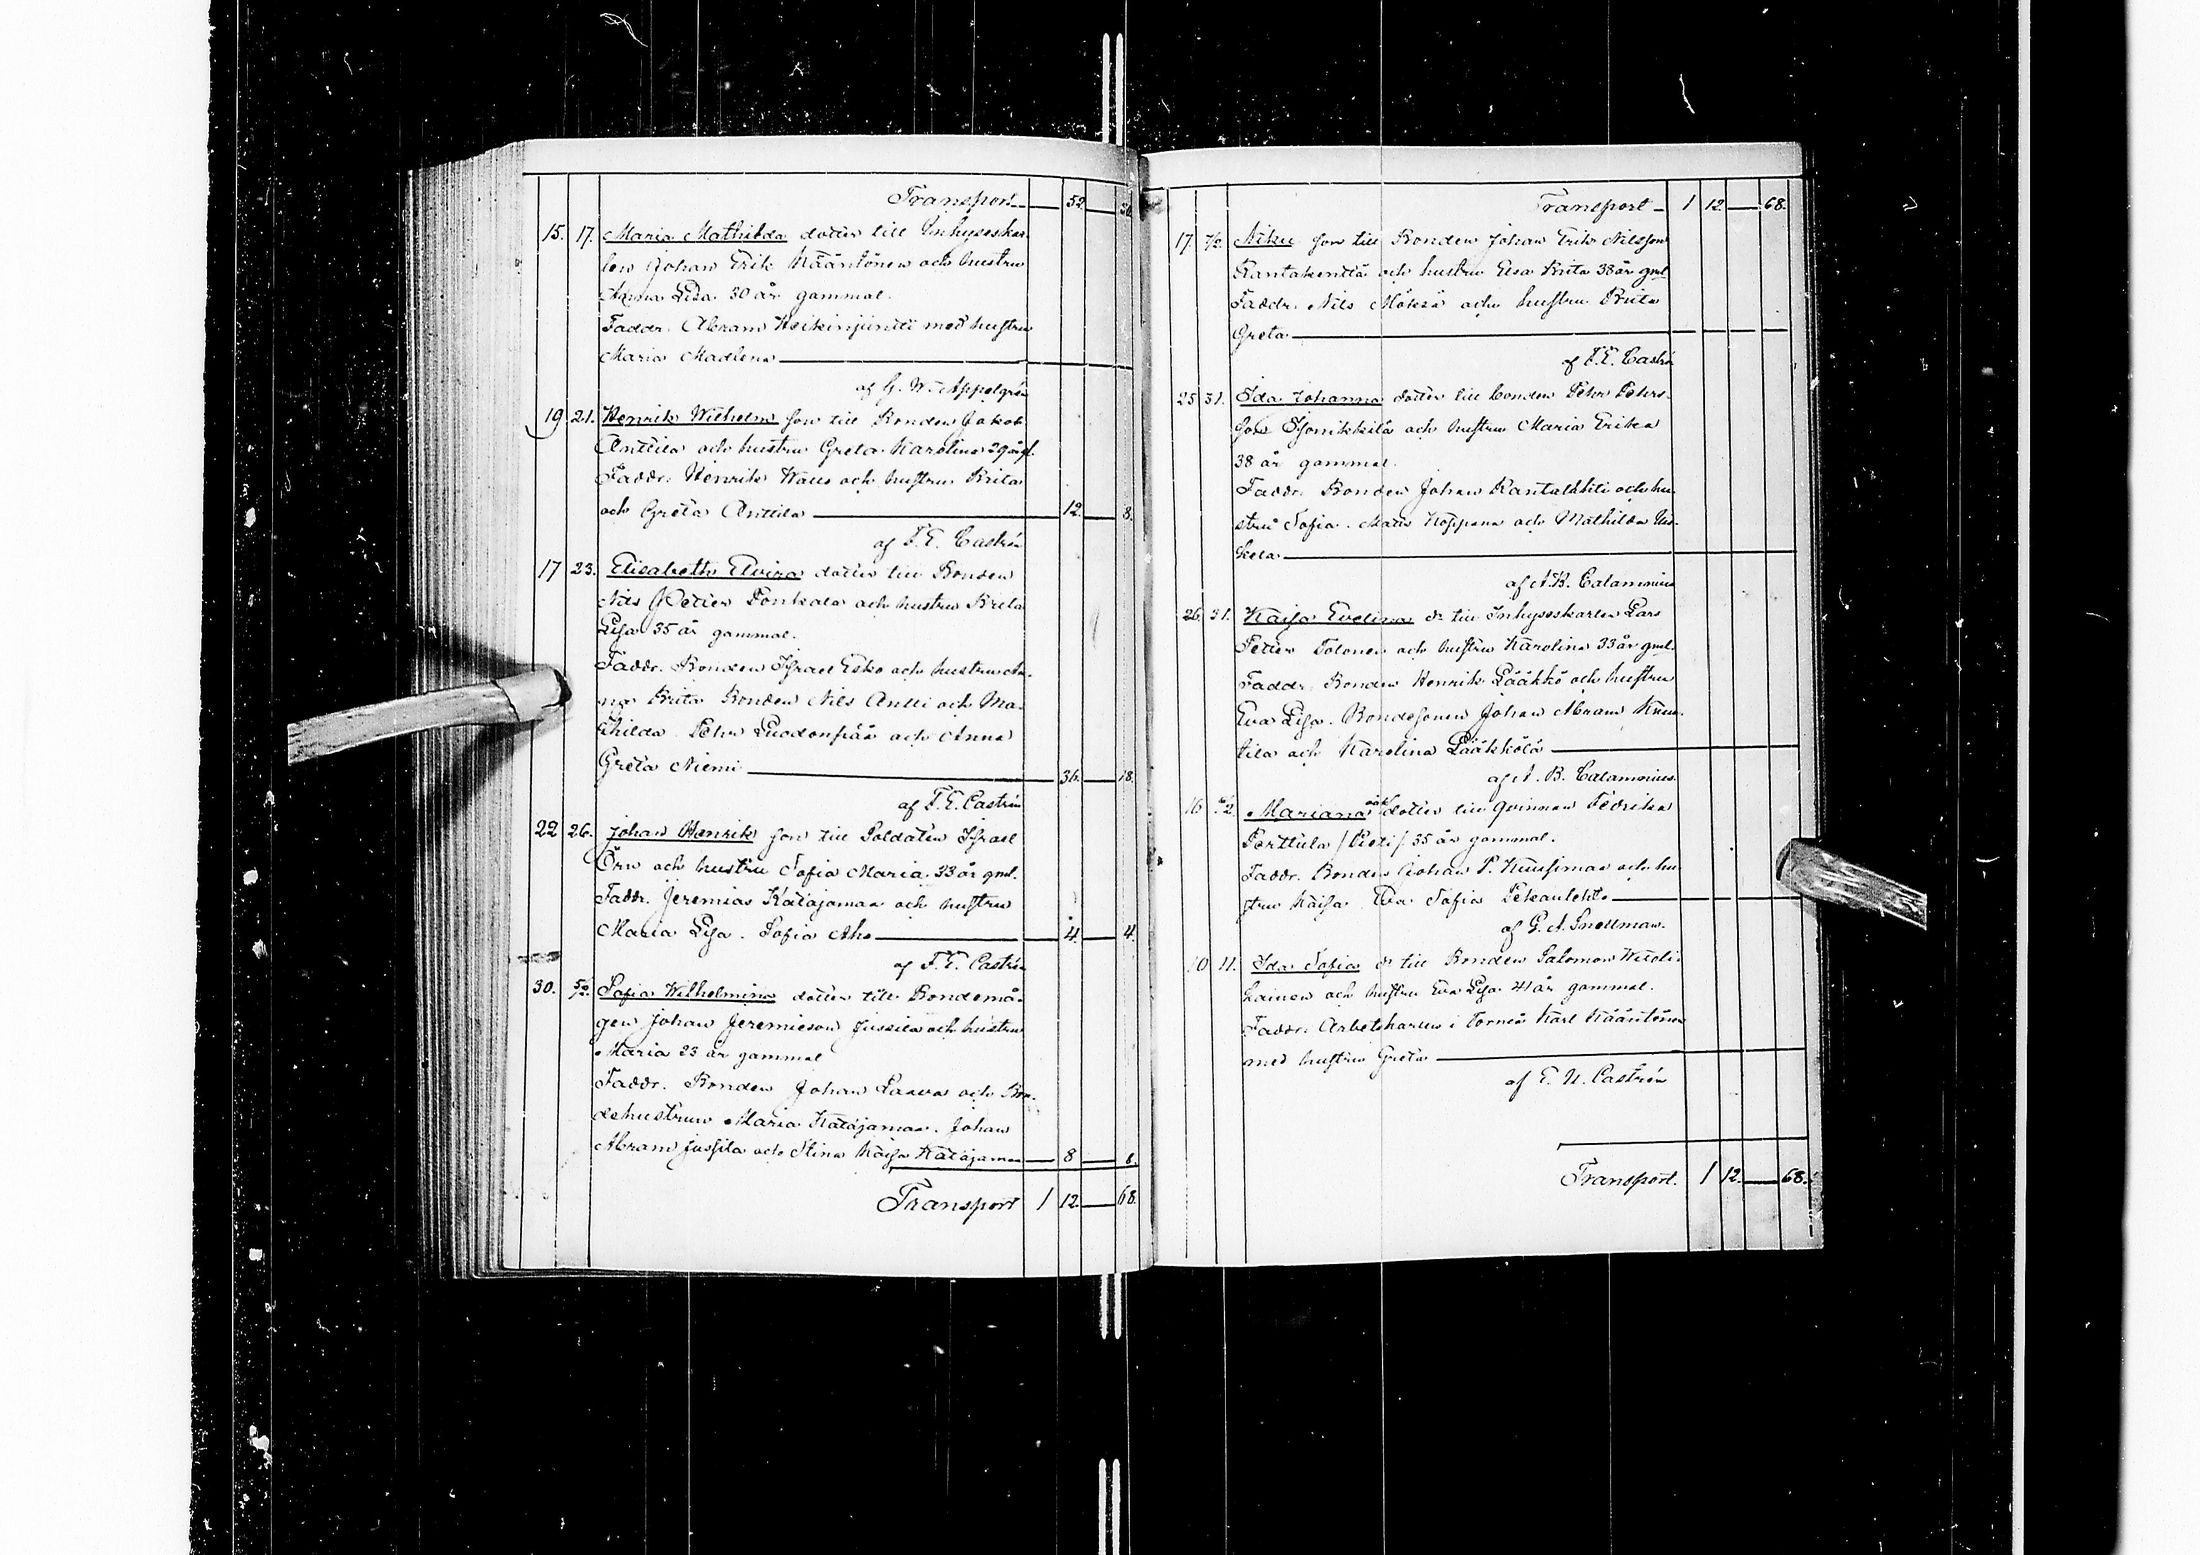 Transport 52 30
15. 17. Maria Mathilda dotter till Inhyseskar-
len Johan Erik Kääntönen och hustru
Anna Lisa 30 år gammal.
Faddr. Abram Heikinjuntti med hustru
Maria Madlena
af G. W. Appelgrén
19 21. Henrik Wilhelm son till Bonden Jakob
Anttila och hustru Greta Karolina 29 år gl.
Faddr. Henrik Waus och hustru Brita
och Greta Anttila 12. 8.
af F. E. Castrén
17 23. Elisabeth Elvira dotter till Bonden
Nils Petter Fonkala och hustru Brita
Lisa 35 år gammal.
Faddr. Bonden Israel Esko och hustru An-
na Brita Bonden Nils Antti och Ma-
thilda Pehr Luodonpää och Anna
Greta Niemi 36. 18.
af F. E. Castrén
22 26. Johan Henrik son till Soldaten Israel
Örn och hustru Sofia Maria 33 år gml.
Faddr. Jeremias Katajamaa och hustru
Maria Lisa. Sofia Aho 4. 4.
af F. E. Castrén
30. 5/2. Sofia Wilhelmina dotter till Bondemå-
gen Johan Jeremiesson Jussila och hustru
Maria 23 år gammal
Faddr. Bonden Johan Laava och Bon-
dehustrun Maria Katajamaa. Johan
Abram Jussila och Stina Kaisa Katajamaa 8 8.
Transport 1 12. 68.
Transport 1 12 68.
17 7/2 Niku son till Bonden Johan Erik Nilsson
Rantakenttä och hustru Elsa Brita 38 år gml
Faddr. Nils Mökkä och hustru Brita
Greta
af F. E. Castrén
25 31. Ida Johanna dotter till bonden Pehr Pehrs-
son Isonikkilä och hustru Maria Erika
38 år gammal.
Faddr. Bonden Johan Rantalahti och hu-
stru Sofia. Matts Koppana och Mathilda
kela
af A. B. Calamnius
26. 31. Kaisa Evelina dr till Inhyseskarlen Lars
Petter Tolonen och hustru Karolina 33 år gml.
Faddr. Bonden Henrik Lääkkö och hustru
Eva Lisa. Bondesonen Johan Abram
tila och Karolina Lääkkölä
af A. B. Calamnius.
16 2. Mariana oäk dotter till qvinnan Fedrika
Perttula /Pieti/ 35 år gammal.
Faddr. Bonden Johan P. Kuusimaa och hu-
stru Kaisa. Eva Sofia Pekanlehto
af G. A. Snellman.
10 11. Ida Sofia dr till Bonden Salomon
kainen och hustru Eva Lisa 41 år gammal.
Faddr. Arbetskarlen i Torneå Karl Kääntönen
med hustru Greta
af E. U. Castrén
Transport. 1 12. 68.